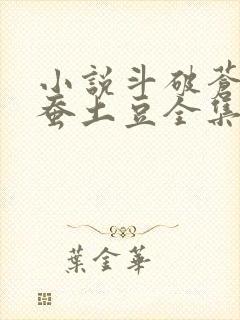 小說斗破蒼
蚕土豆全集
葉金華